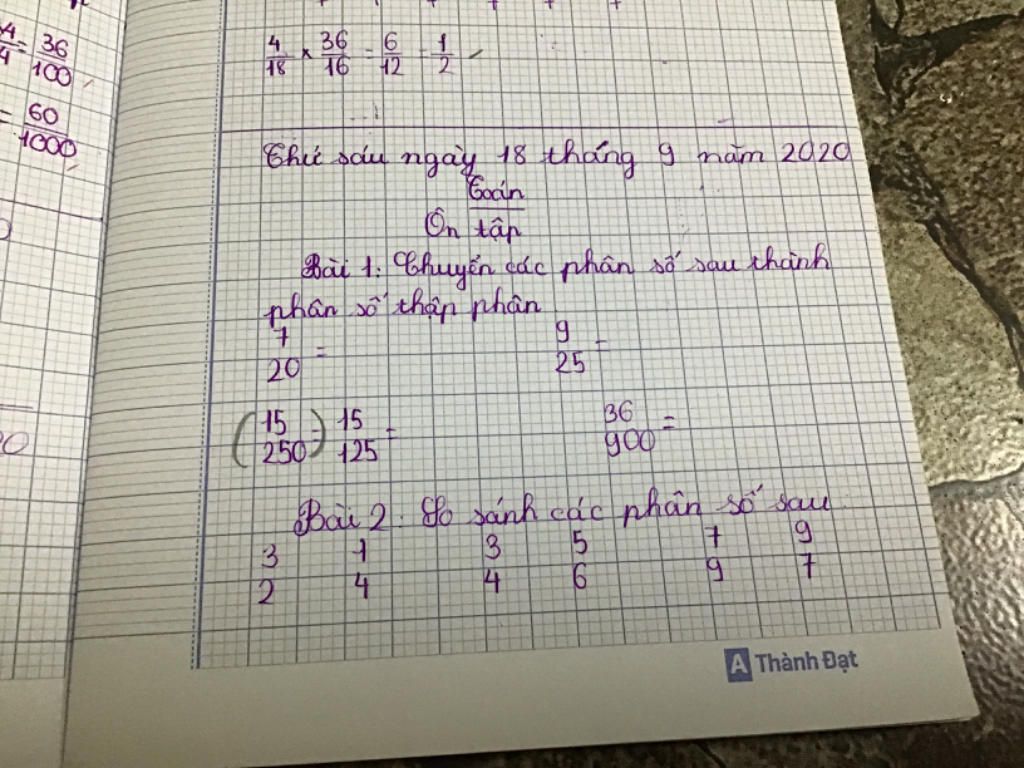 4/4 = 36/100
= 60/1000
4/18 × 36/16 = 6/12 = 1/2
Thứ sáu ngày 18 tháng 9 năm 2020
Toán
Ôn tập
Bài 1: Chuyển các phân số sau thành
phân số thập phân
7/20 = 9/25 =
(15/250 =) 15/125 = 36/900 =
Bài 2: So sánh các phân số sau
3/2 1/4 3/4 5/6 7/9 9/7
A Thành Đạt